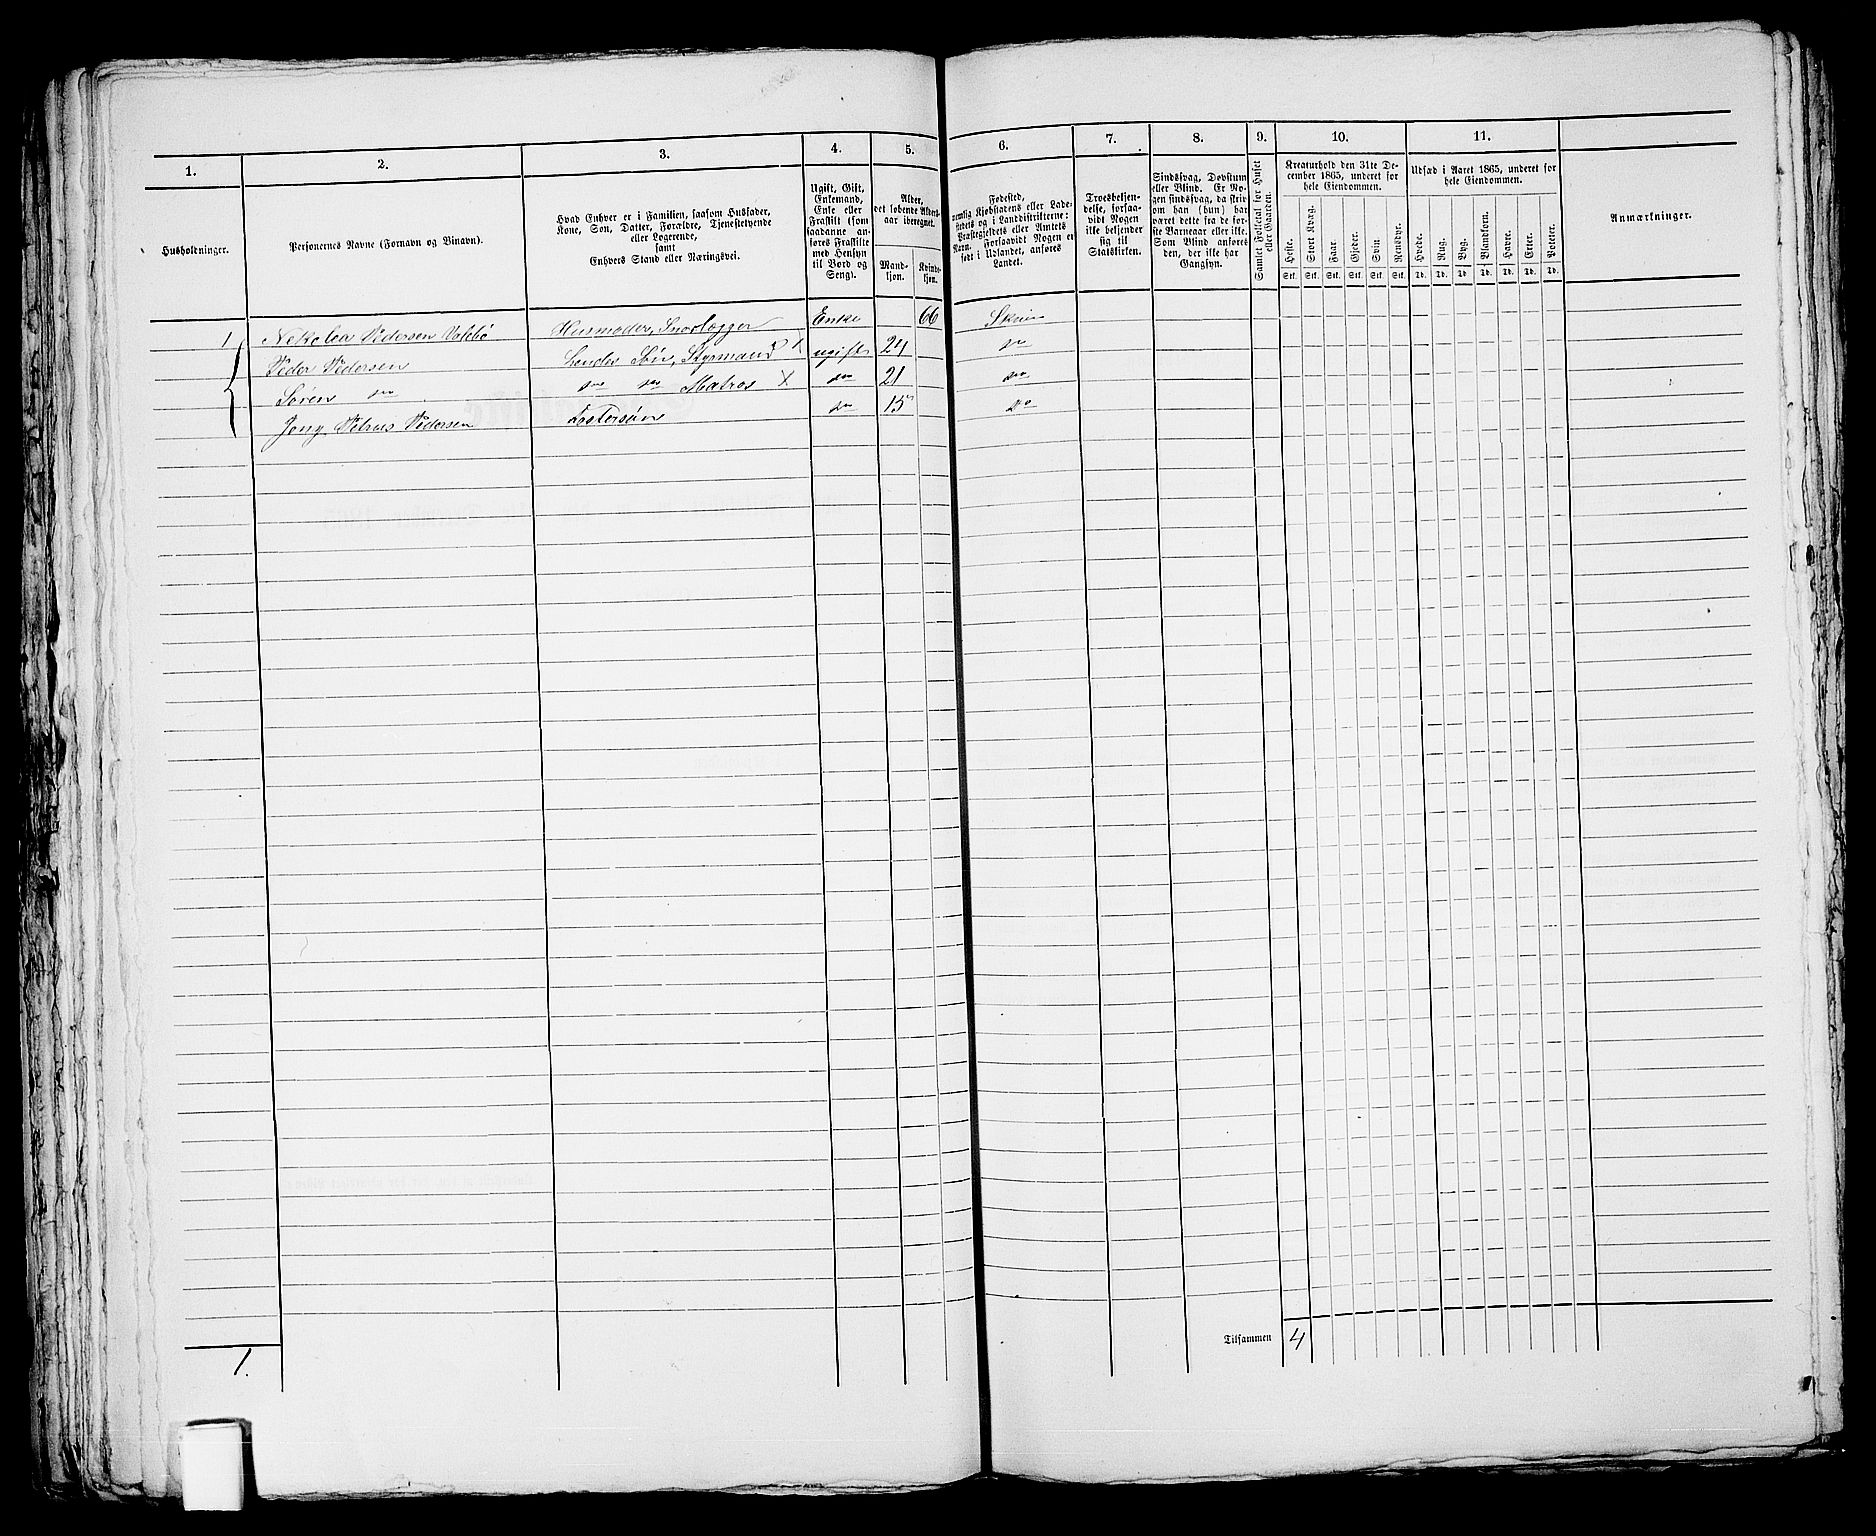 1. 2. 3. 4. 5. 6. 7. 8. 9. 10. 11.
Husholdninger.
Personernes Navne (Fornavn og Binavn).
Hvad Enhver er i Familien, saasom Husfader,
Kone, Søn, Datter, Forældre, Tjenestetyende
eller Logerende,
samt
Enhvers Stand eller Næringsvei.
Ugift, Gift,
Enkemand,
Enke eller
Fraskilt (som
saadanne an-
føres Fraskilte
med Hensyn
til Bord og
Seng).
Alder,
det løbende Alders-
aar iberegnet.
Mand-
kjøn.
Kvinde-
kjøn.
Fødested,
nemlig Kjøbstadens eller Lade-
stedets og i Landdistrikterne:
Præstegjeldets eller Amtets
Navn. Forsaavidt Nogen er
født i Udlandet, anføres
Landet.
Troesbekjen-
delse, forsaa-
vidt Nogen
ikke bekjender
sig til
Statskirken.
Sindssvag, Døvstum
eller Blind. Er No-
gen sindssvag, da skriv
om han (hun) har
været dette fra de før-
ste Barneaar eller ikke.
Som Blind anføres
den, der ikke har
Gangsyn.
Samlet Folketal for Huset
eller Gaarden.
Kreaturhold den 31te De-
cember 1865, underet for
hele Eiendommen.
Heste. Stort Kvæg. Faar. Gjeder. Svin. Rensdyr.
Stk. Stk. Stk. Stk. Stk. Stk.
Udsæd i Aaret 1865, underet for
hele Eiendommen.
Hvede. Rug. Byg. Blandkorn. Havre. Erter. Poteter.
Td. Td. Td. Td. Td. Td. Td.
Anmærkninger.
1 Pedersen Valebø Husmoder, Enke 66 Skien
Peder Pedersen Søn, Styrmand X ugift 24 do
Søren do do do Matros X do 21 do
Petrus Pedersen Fostersøn do 15 do
Tilsammen 4
1.